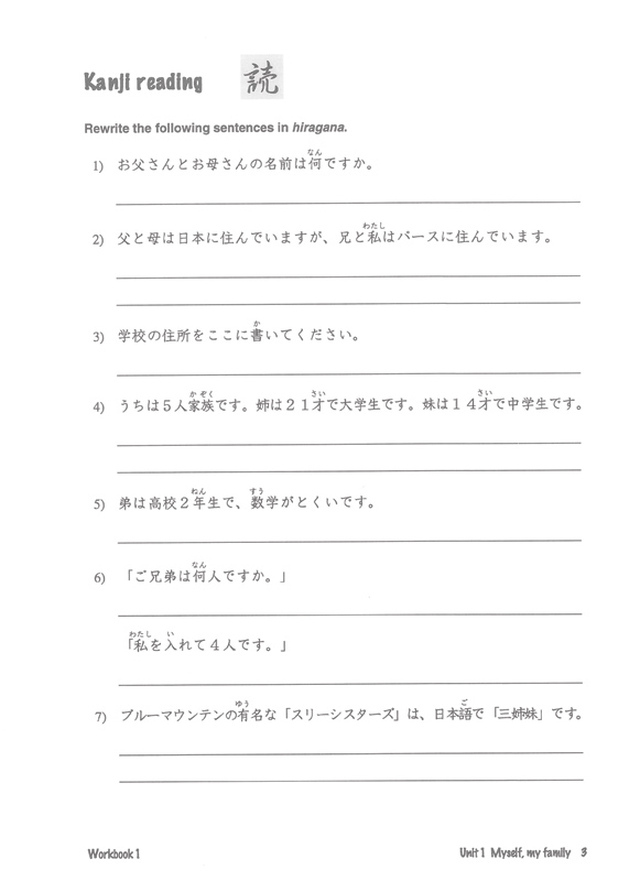 Kanji reading 読
Rewrite the following sentences in hiragana.
なん
1) お父さんとお母さんの名前は何ですか。
わたし
2) 父と母は日本に住んでいますが、兄と私はパースに住んでいます。
か
3) 学校の住所をここに書いてください。
か ぞく さい さい
4) うちは5人家族です。姉は21才で大学生です。妹は14才で中学生です。
ねん すう
5) 弟は高校2年生で、数学がとくいです。
なん
6) 「ご兄弟は何人ですか。」
わたし い
「私を入れて4人です。」
ゆう ご
7) ブルーマウンテンの有名な「スリーシスターズ」は、日本語で「三姉妹」です。
Workbook 1 Unit 1 Myself, my family 3